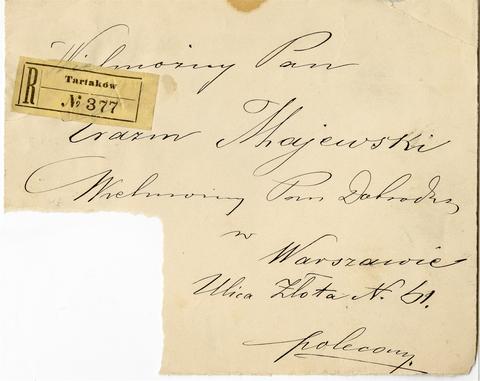 Wielmożny Pan
R
Tartaków
№ 377
Erazm Majewski
Wielmożny Pan Dobrodziej
w
Warszawie
Ulica Złota N. 61.
polecony.